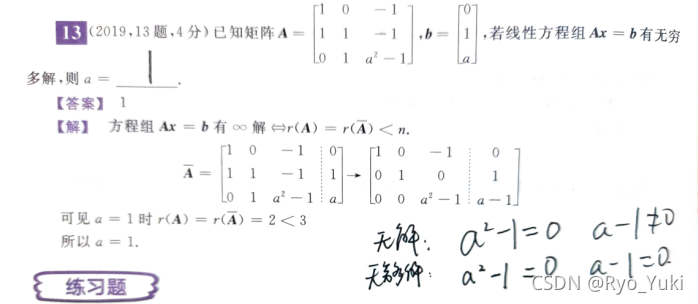 13 (2019,13题,4分)已知矩阵A = [1 0 −1; 1 1 −1; 0 1 a²−1], b = [0; 1; a],若线性方程组Ax = b有无穷
多解,则a = 1.
【答案】 1
【解】 方程组Ax = b有∞解⇔r(A) = r(Ā) < n.
Ā = [1 0 −1 ⋮ 0; 1 1 −1 ⋮ 1; 0 1 a²−1 ⋮ a] → [1 0 −1 ⋮ 0; 0 1 0 ⋮ 1; 0 0 a²−1 ⋮ a−1]
可见a = 1时r(A) = r(Ā) = 2 < 3
所以a = 1.
无解: a²−1=0 a−1≠0
无穷多解: a²−1=0 a−1=0
练习题
CSDN @Ryo_Yuki